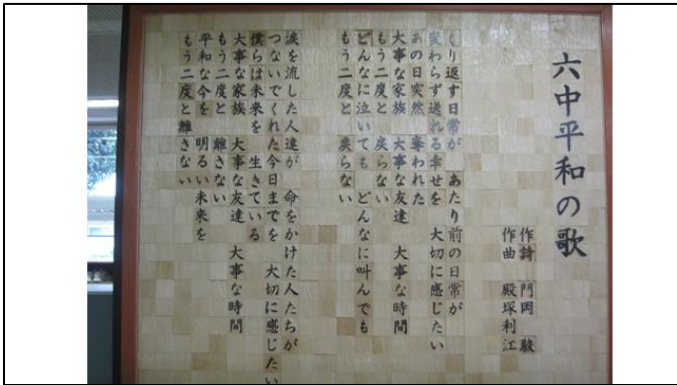 六中平和の歌
作詩 門岡 駿
作曲 殿塚利江
くり返す日常が あたり前の日常が
変わらず送れる幸せを 大切に感じたい
あの日突然 奪われた
大事な家族 大事な友達 大事な時間
もう二度と 戻らない
どんなに泣いても どんなに叫んでも
もう二度と 戻らない
涙を流した人達が 命をかけた人たちが
つないでくれた今日までを 大切に感じたい
僕らは未来を 生きている
大事な家族 大事な友達 大事な時間
もう二度と 離さない
平和な今を 明るい未来を
もう二度と離さない